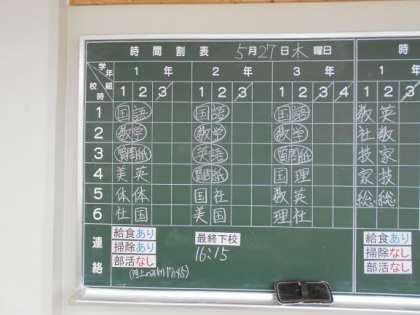 時間割表 5月27日木曜日
学年 1年 2年 3年 1年
校時 組 1 2 3 1 2 3 1 2 3 4 1 2
1 国語 国語 国語 数 英
2 数学 数学 数学 社 数
3 質問紙 英語 質問紙 技 家
4 美 英 質問紙 国 理 家 技
5 体 体 国 社 数 英 総 総
6 社 国 美 国 理 社
連絡 給食あり 最終下校 給食あり
掃除あり 16:15 掃除あり
部活なし 部活なし